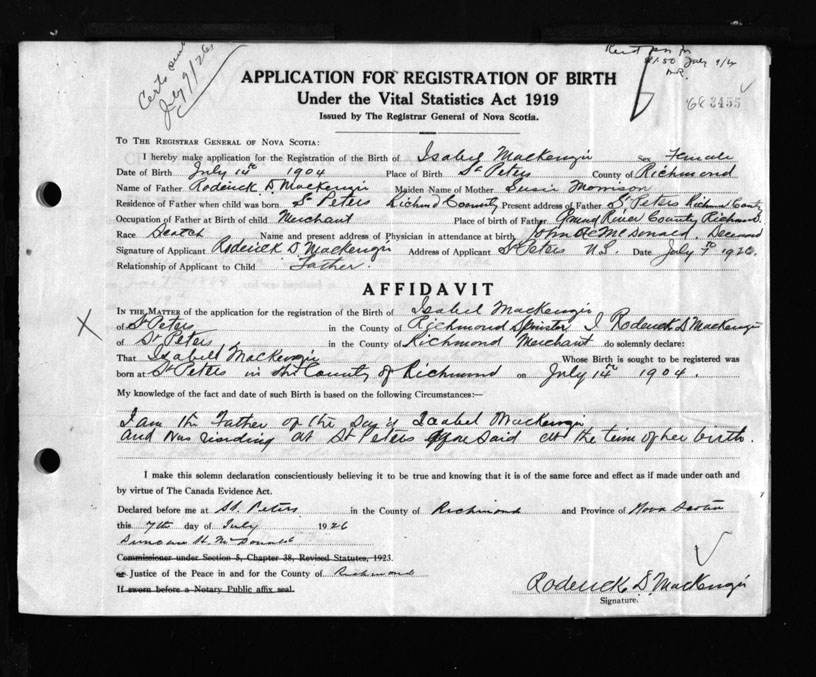 Certs sent
July 9/26
July 9/26
APPLICATION FOR REGISTRATION OF BIRTH
Under the Vital Statistics Act 1919
Issued by The Registrar General of Nova Scotia.
3455
TO THE REGISTRAR GENERAL OF NOVA SCOTIA:
I hereby make application for the Registration of the Birth of Isabel MacKenzie Sex Female
Date of Birth July 14th 1904 Place of Birth St Peters County of Richmond
Name of Father Roderick D. MacKenzie Maiden Name of Mother Susie Morrison
Residence of Father when child was born St Peters Richmd County Present address of Father St Peters Richmd County
Occupation of Father at Birth of child Merchant Place of birth of Father Grand River County Richmond.
Race Scotch Name and present address of Physician in attendance at birth John McDonald, Deceased
Signature of Applicant Roderick D MacKenzie Address of Applicant St Peters N.S. Date July 7th 1926.
Relationship of Applicant to Child Father.
AFFIDAVIT
IN THE MATTER of the application for the registration of the Birth of Isabel MacKenzie
X of St Peters in the County of Richmond Spinster I Roderick D MacKenzie
of St Peters, in the County of Richmond Merchant do solemnly declare:
That Isabel MacKenzie Whose Birth is sought to be registered was
born at St Peters in the County of Richmond on July 14th 1904.
My knowledge of the fact and date of such Birth is based on the following Circumstances:—
I am the Father of the said Isabel MacKenzie
and was residing at St Peters afore said at the time of her birth.
I make this solemn declaration conscientiously believing it to be true and knowing that it is of the same force and effect as if made under oath and
by virtue of The Canada Evidence Act.
Declared before me at St. Peters in the County of Richmond and Province of Nova Scotia
this 7th day of July 1926
Duncan H McDonald
Commissioner under Section 5, Chapter 38, Revised Statutes, 1923.
or Justice of the Peace in and for the County of Richmond
If sworn before a Notary Public affix seal.
Roderick D MacKenzie
Signature.